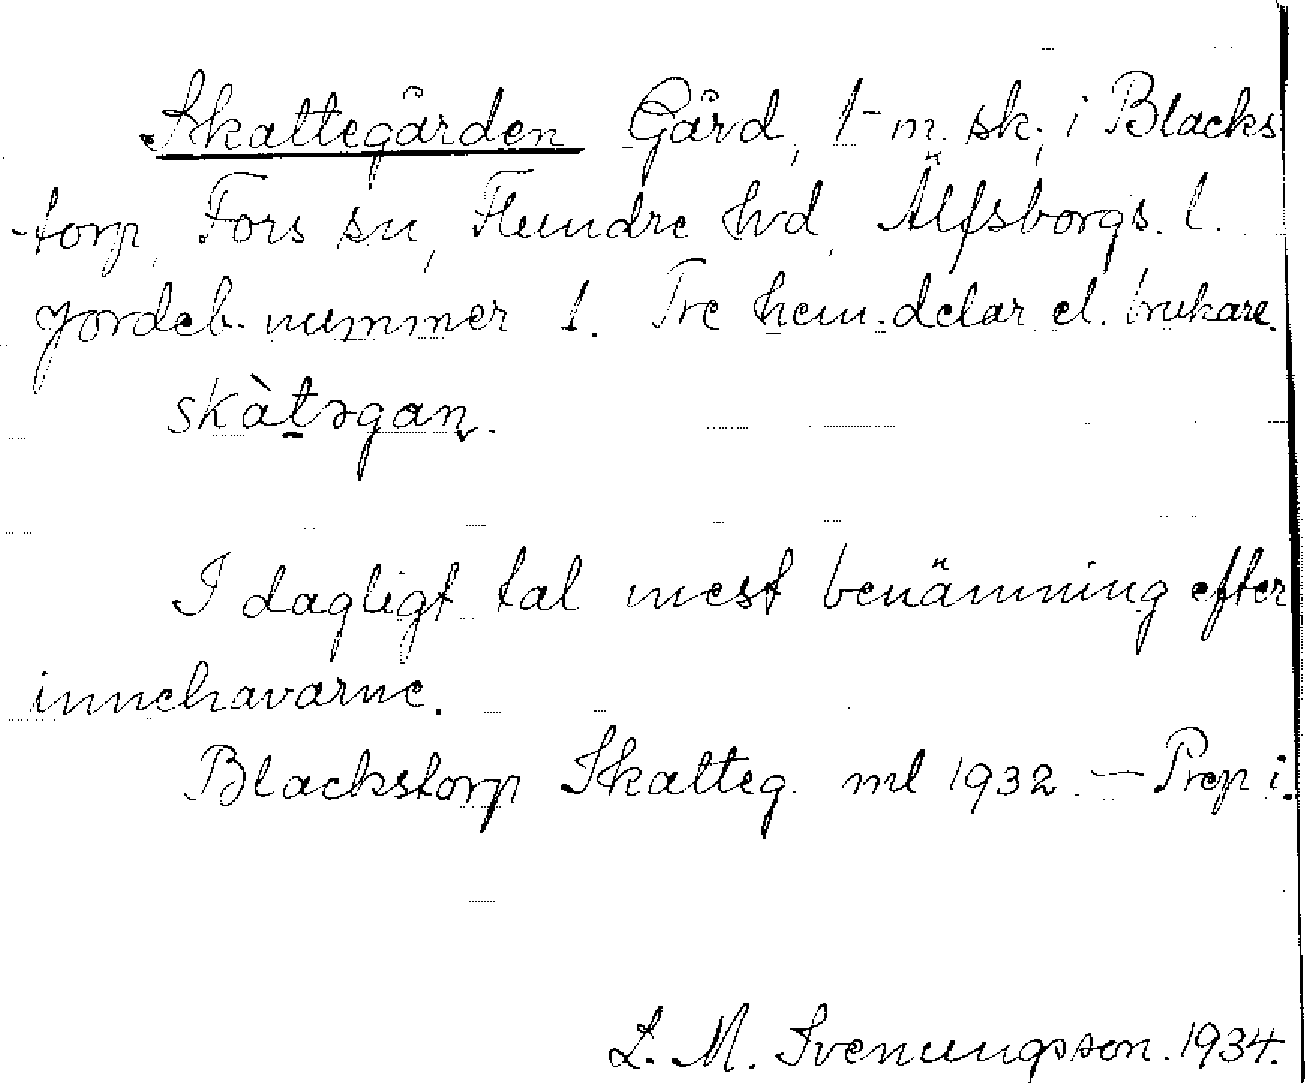 Skattegården Gård, 1 m. sk, i Blacks
-torp, Fors sn, Flundre hd, Älfsborgs. l.
Jordeb. nummer 1. Tre hem. delar el. brukare.
skàtəgan.
I dagligt tal mest benämning efter
innehavarne.
Blackstorp Skatteg. ml 1932. — Prep i.
L. M. Svenungsson. 1934.